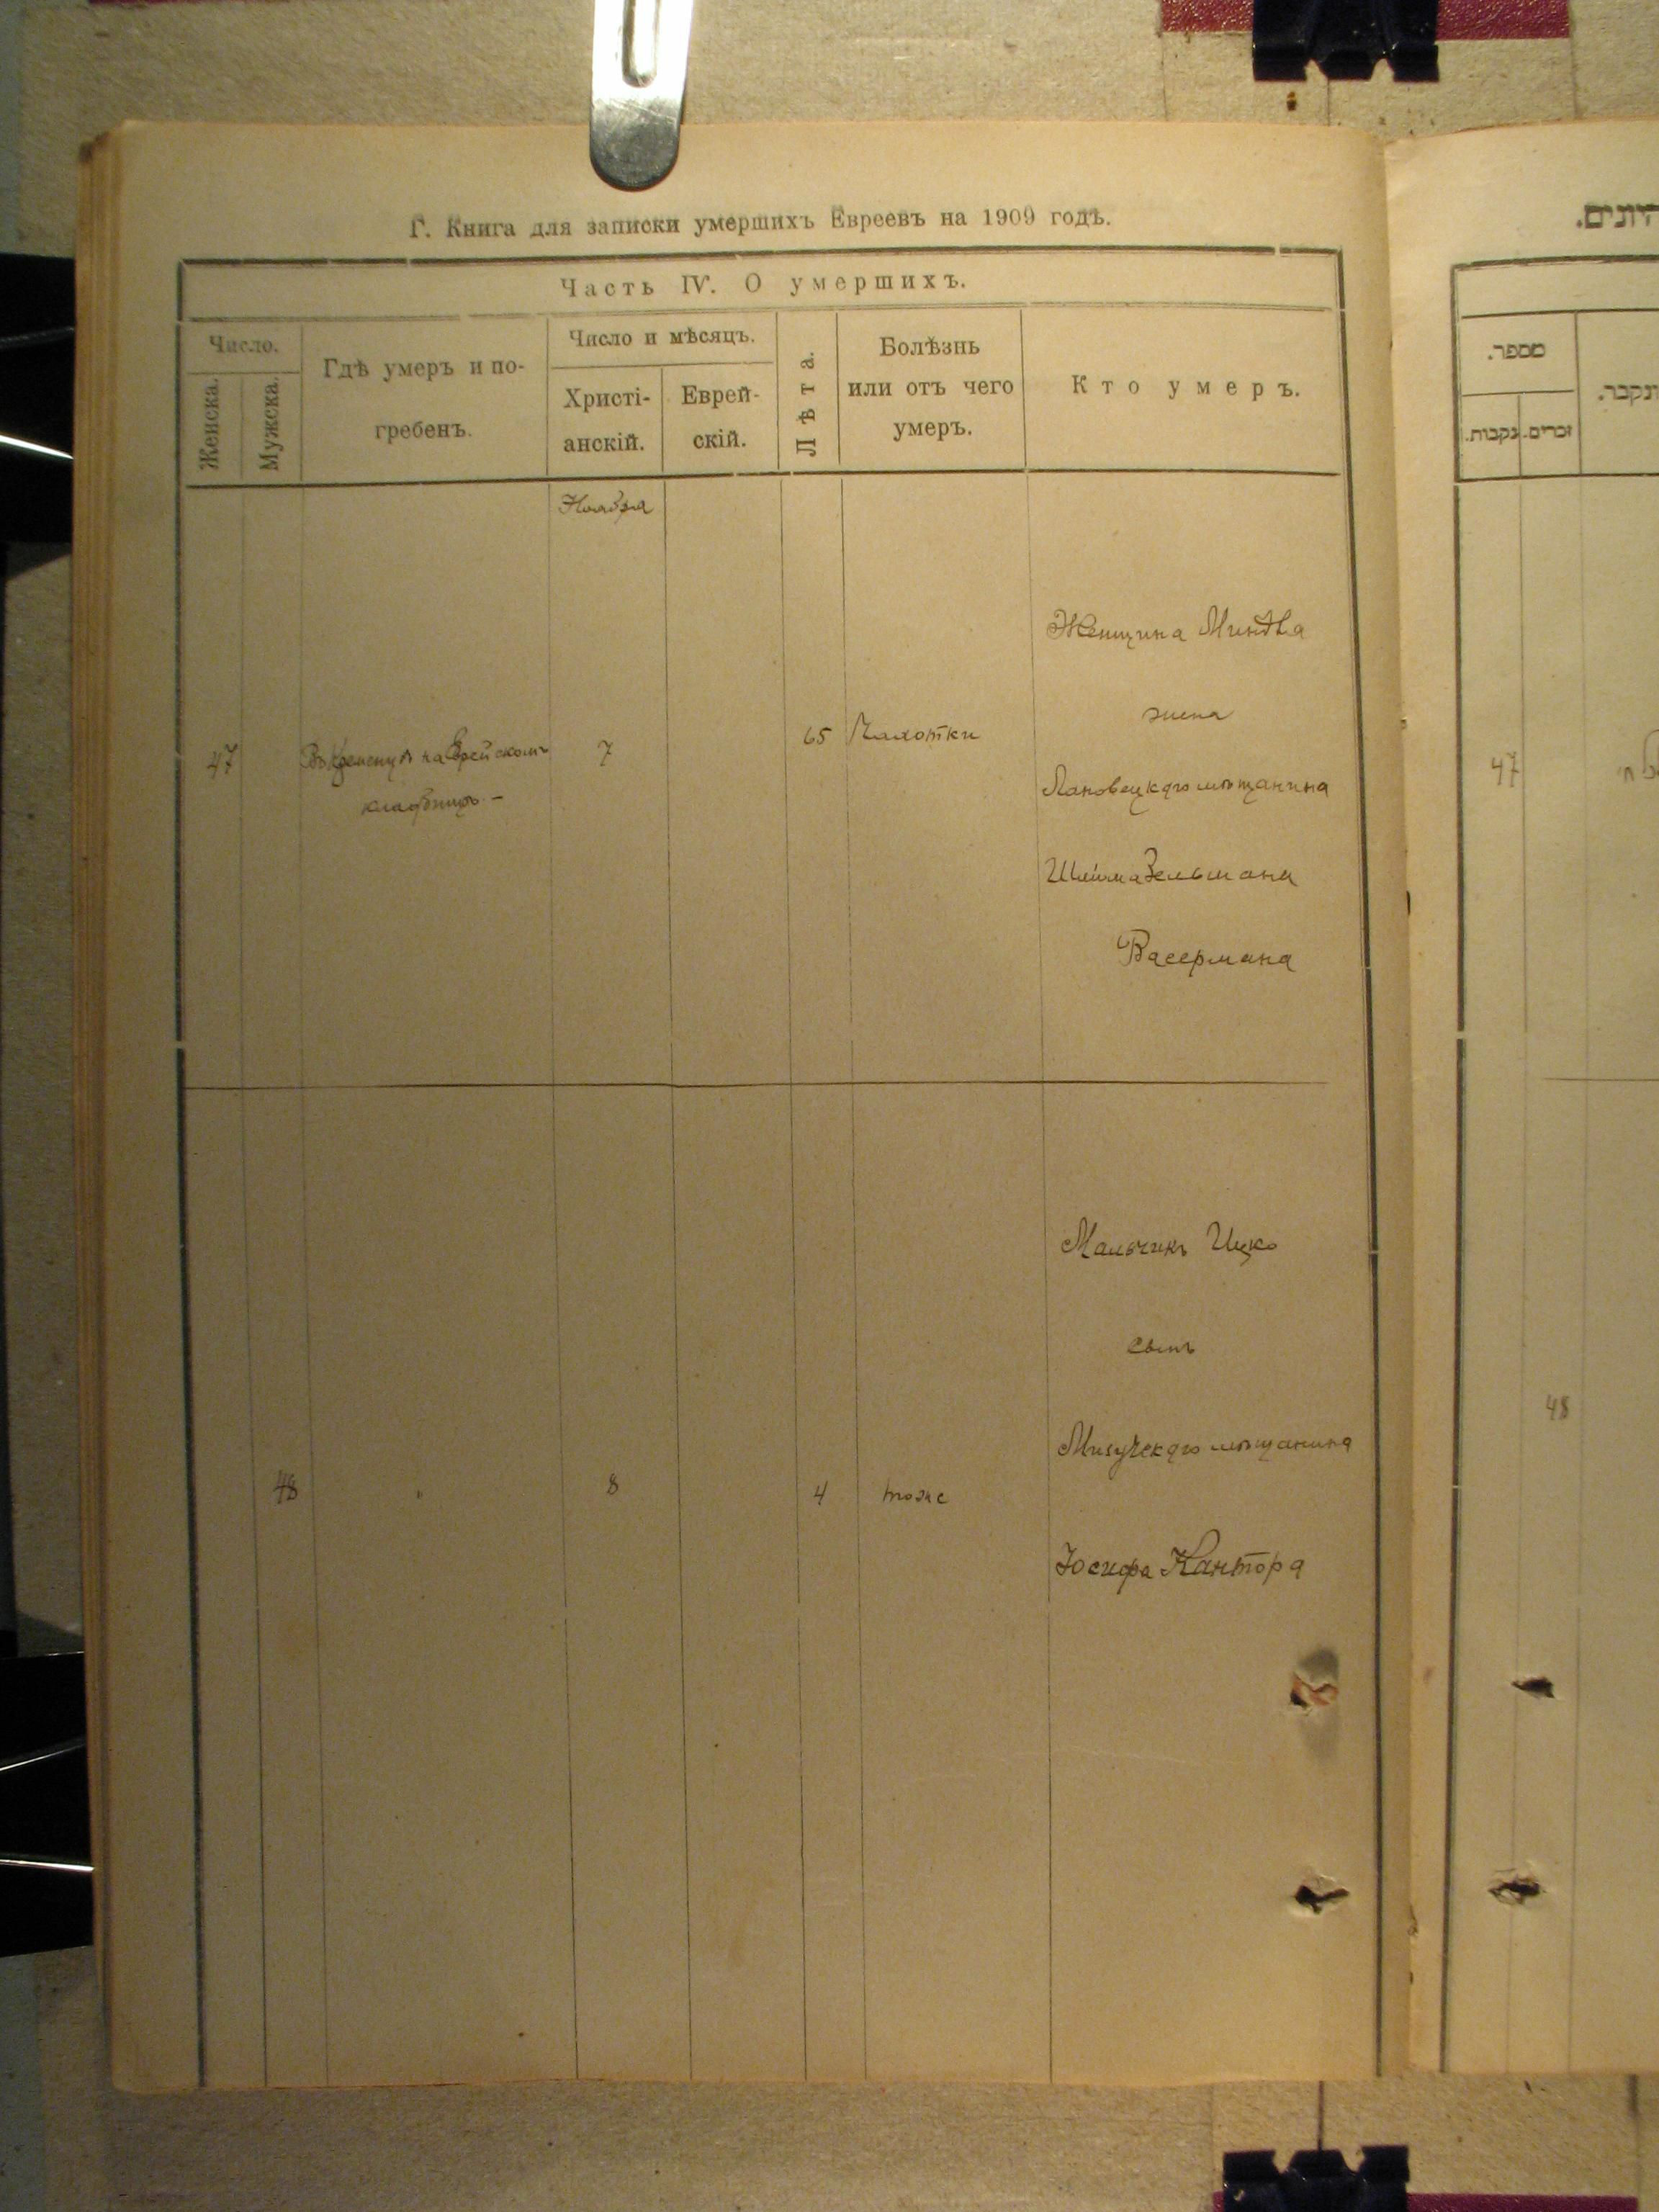 Г. Книга для записки умершихъ Евреевъ на 1909 годъ.
Часть IV. О умершихъ.
Число.
Женска.
Мужска.
Гдѣ умеръ и по-
гребенъ.
Число и мѣсяцъ.
Христі-
анскій.
Еврей-
скій.
Лѣта.
Болѣзнь
или отъ чего
умеръ.
Кто умеръ.
Ноября
47
Въ Кременцѣ на Еврейскомъ
кладбищѣ —
7
65
Чахотки
Женщина Миндля
жена
Лановецкаго мѣщанина
Шлёма Зельмана
Васермана
48
"
8
4
тоже
Мальчикъ Ицко
сынъ
Мизучскаго мѣщанина
Іосифа Кантора
מספר.
נקבות.
זכרים.
47
48